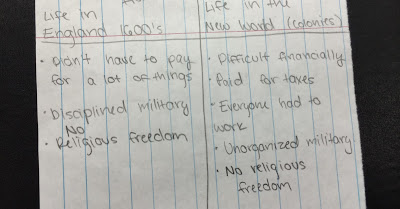 Life in
England 1600's
• Didn't have to pay
for a lot of things
• Disciplined military
NO
• Religious freedom
Life in the
New World (colonies)
• Difficult financially
• Paid for taxes
• Everyone had to
work
• Unorganized military
• No religious
freedom